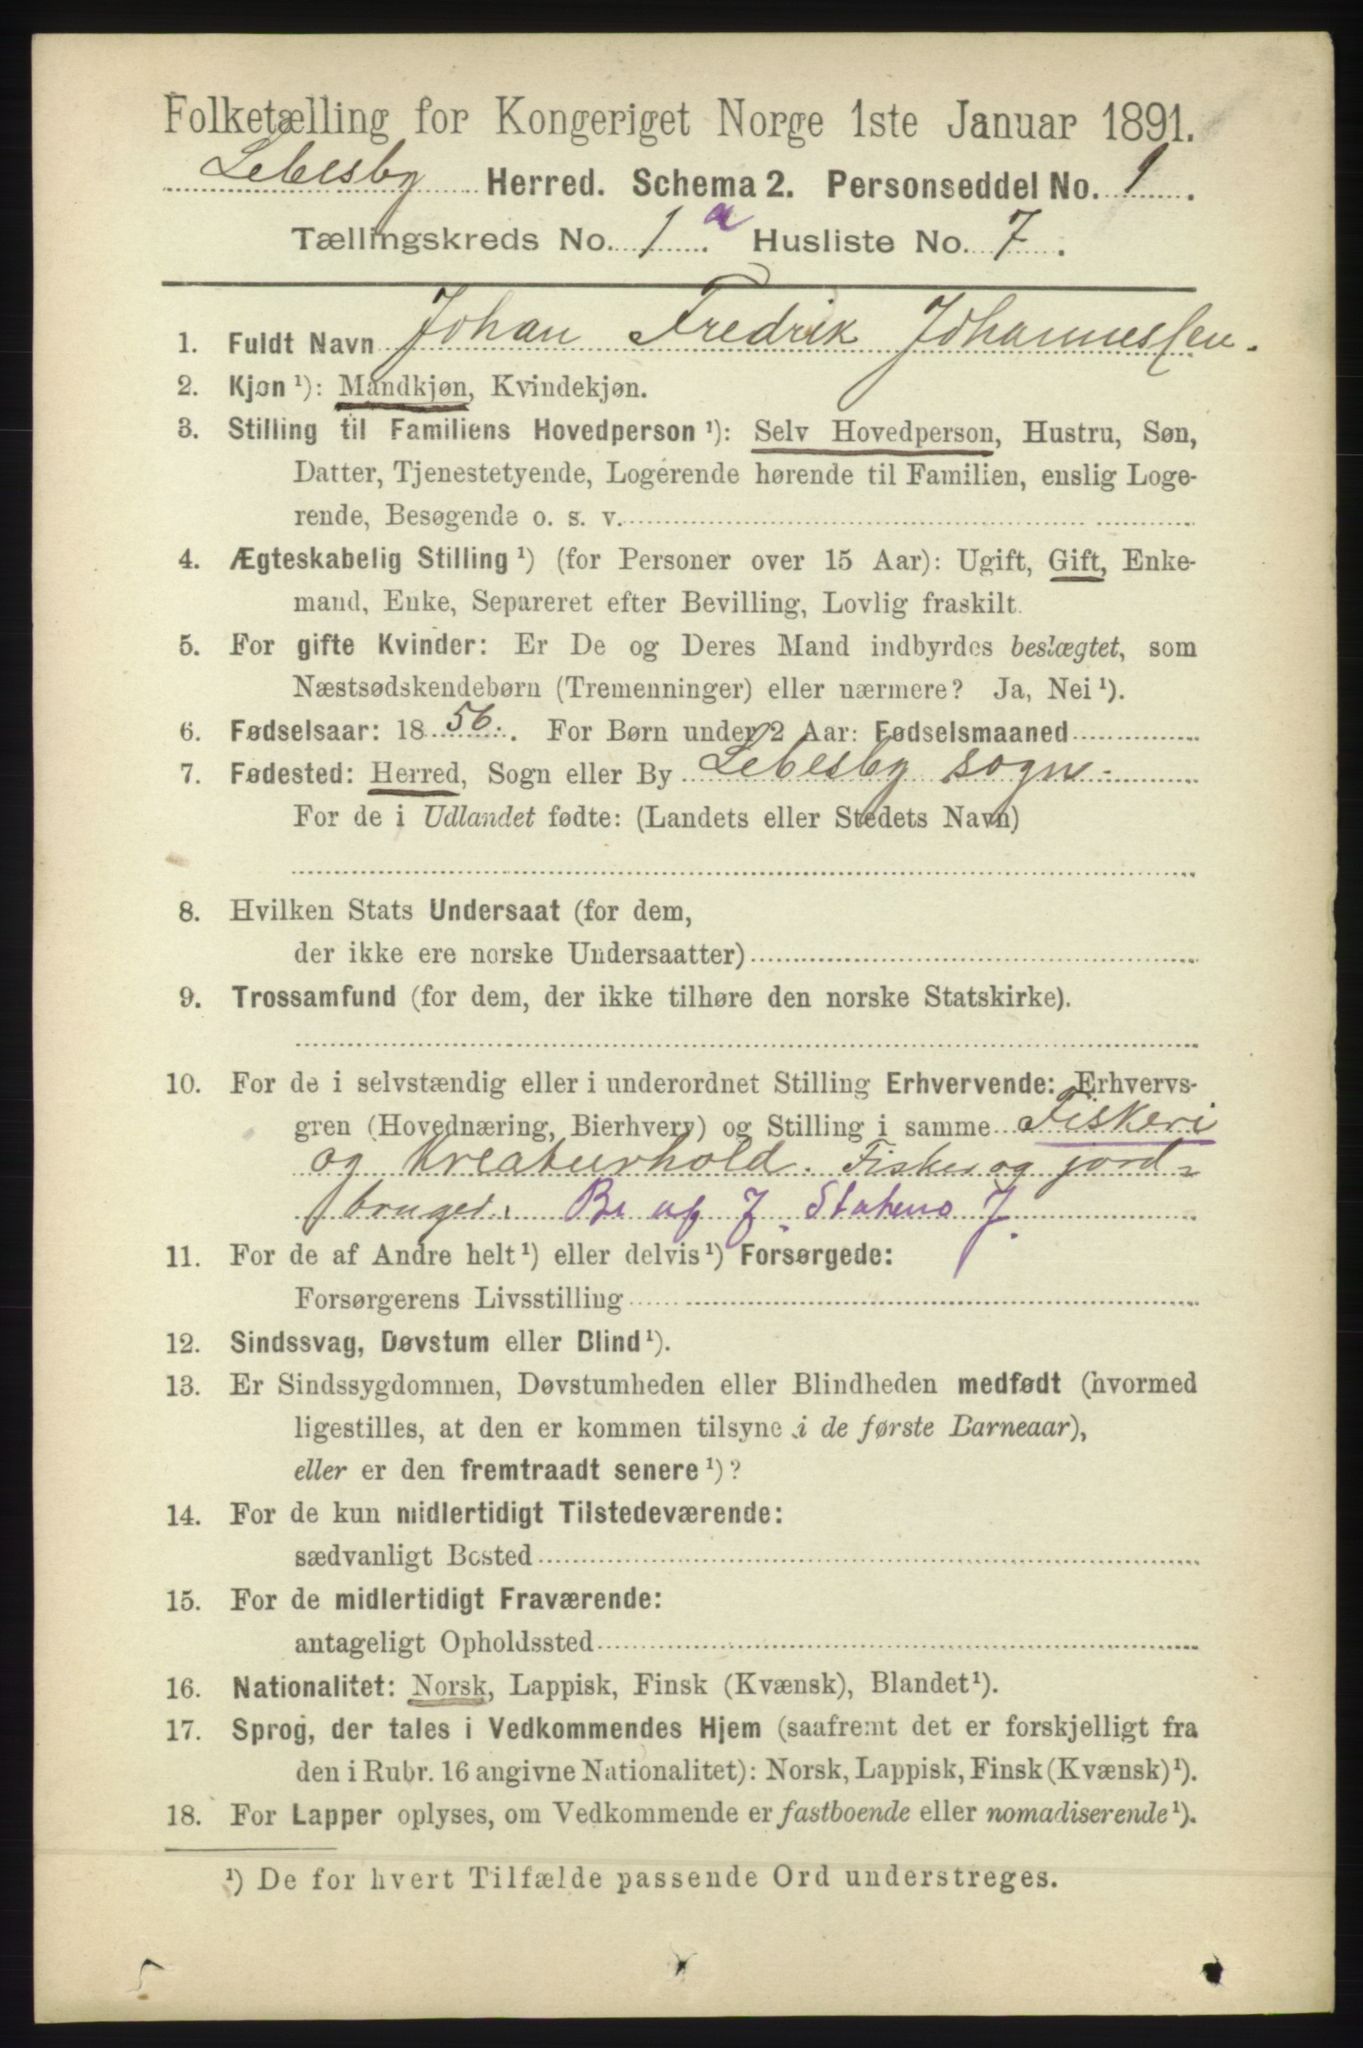 Folketælling for Kongeriget Norge 1ste Januar 1891.
Lebesby Herred. Schema 2. Personseddel No. 1.
Tællingskreds No. 1 a. Husliste No. 7.
1. Fuldt Navn Johan Fredrik Johannessen.
2. Kjøn ¹): Mandkjøn, Kvindekjøn.
3. Stilling til Familiens Hovedperson ¹): Selv Hovedperson, Hustru, Søn,
Datter, Tjenestetyende, Logerende hørende til Familien, enslig Loge-
rende, Besøgende o. s. v.
4. Ægteskabelig Stilling ¹) (for Personer over 15 Aar): Ugift, Gift, Enke-
mand, Enke, Separeret efter Bevilling, Lovlig fraskilt.
5. For gifte Kvinder: Er De og Deres Mand indbyrdes beslægtet, som
Næstsødskendebørn (Tremenninger) eller nærmere? Ja, Nei ¹).
6. Fødselsaar: 1856. For Børn under 2 Aar: Fødselsmaaned
7. Fødested: Herred, Sogn eller By Lebesby sogn.
For de i Udlandet fødte: (Landets eller Stedets Navn)
8. Hvilken Stats Undersaat (for dem,
der ikke ere norske Undersaatter)
9. Trossamfund (for dem, der ikke tilhøre den norske Statskirke).
10. For de i selvstændig eller i underordnet Stilling Erhvervende: Erhvervs-
gren (Hovednæring, Bierhverv) og Stilling i samme Fiskeri
og kreaturhold. Fisker og jord-
bruger. Br af J. Statens J.
11. For de af Andre helt ¹) eller delvis ¹) Forsørgede:
Forsørgerens Livsstilling
12. Sindssvag, Døvstum eller Blind ¹).
13. Er Sindssygdommen, Døvstumheden eller Blindheden medfødt (hvormed
ligestilles, at den er kommen tilsyne i de første Barneaar),
eller er den fremtraadt senere ¹)?
14. For de kun midlertidigt Tilstedeværende:
sædvanligt Bosted
15. For de midlertidigt Fraværende:
antageligt Opholdssted
16. Nationalitet: Norsk, Lappisk, Finsk (Kvænsk), Blandet ¹).
17. Sprog, der tales i Vedkommendes Hjem (saafremt det er forskjelligt fra
den i Rubr. 16 angivne Nationalitet): Norsk, Lappisk, Finsk (Kvænsk) ¹).
18. For Lapper oplyses, om Vedkommende er fastboende eller nomadiserende ¹).
¹) De for hvert Tilfælde passende Ord understreges.